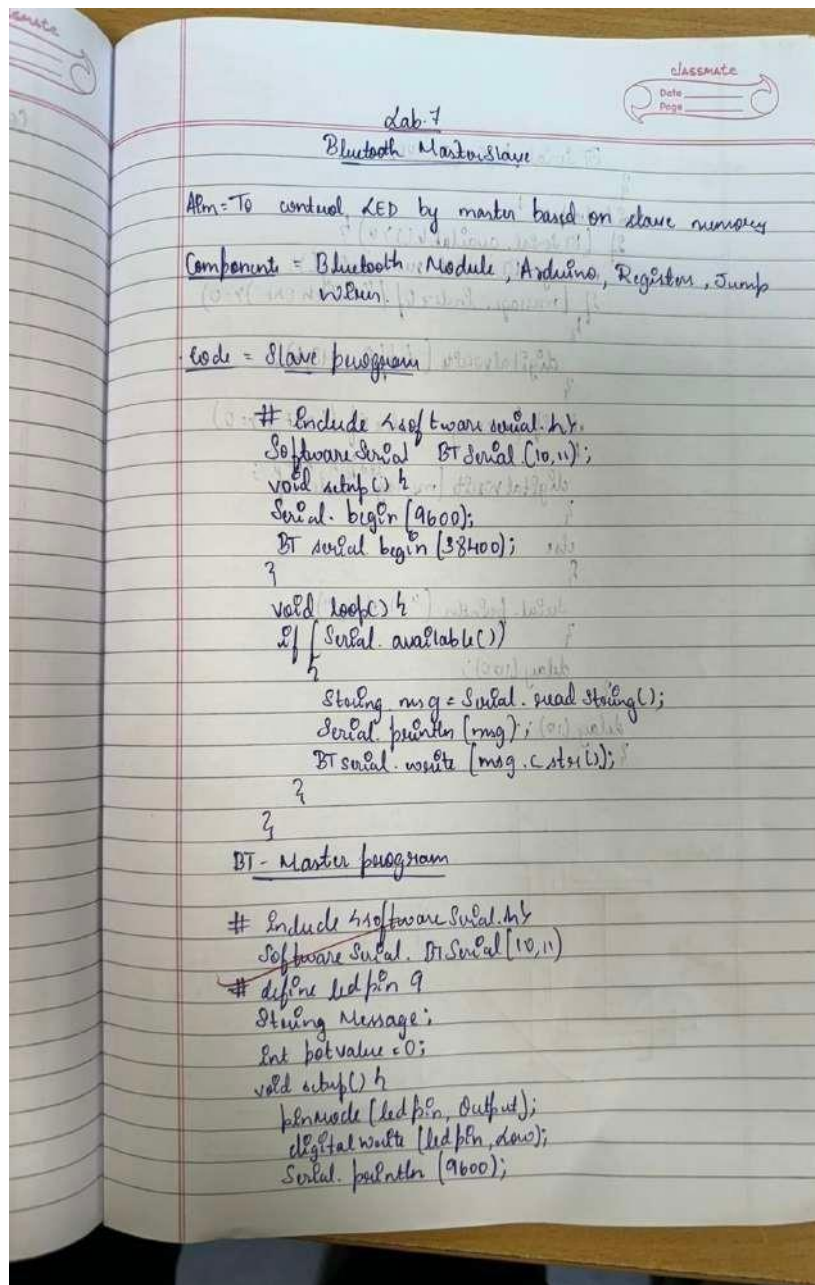 classmate
Date
Page
Lab-7
Bluetooth Master Slave
Aim = To control LED by master based on slave memory
Components = Bluetooth Module, Arduino, Registers, Jump
wires.
Code = Slave program
# include <software serial.h>
Software Serial BT Serial (10,11);
void setup() {
Serial. begin (9600);
BT serial begin (38400);
}
void loop() {
if (Serial. available())
{
String msg = Serial. read String();
Serial. println (msg);
BT serial. write (msg. c str());
}
}
BT - Master program
# include <software Serial.h>
Software Serial. BT Serial (10,11)
# define led pin 9
String Message;
int potvalue = 0;
void setup() {
pinMode (led pin, Output);
digital write (led pin, Low);
Serial. println (9600);